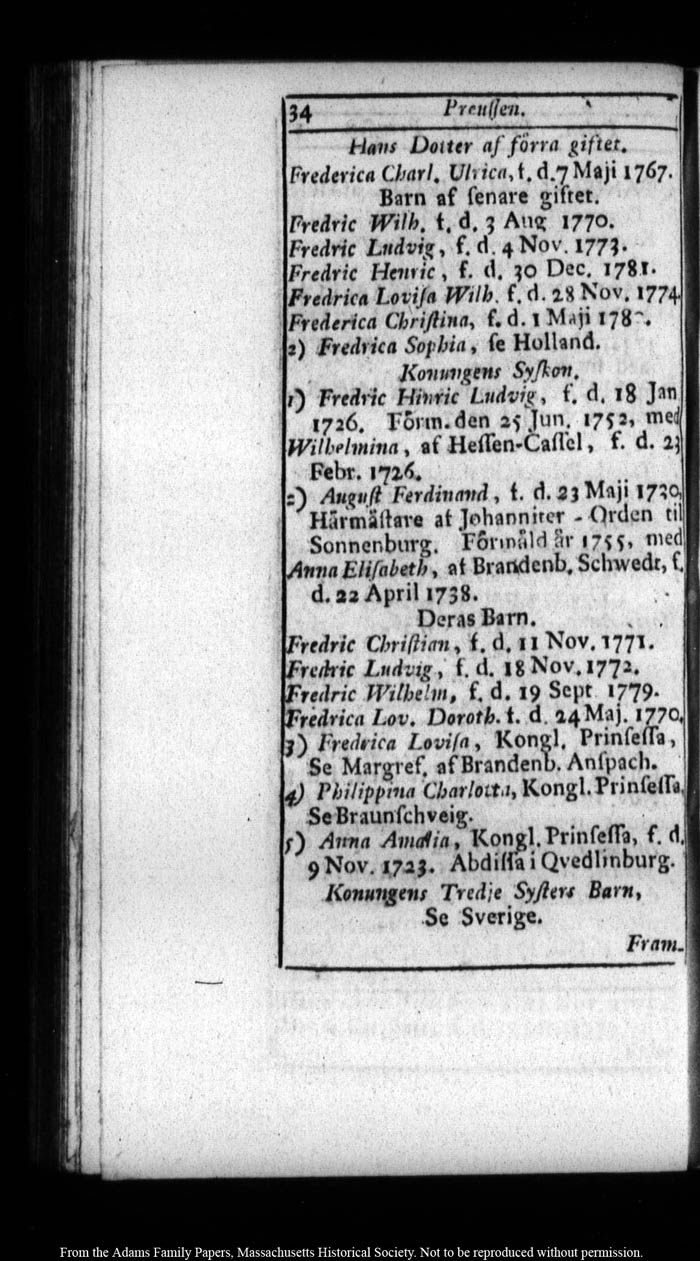 34 Preuſſen.
Hans Dotter af förra giftet.
Frederica Charl. Ulrica, f. d. 7 Maji 1767.
Barn af ſenare giftet.
Fredric Wilh. f. d. 3 Aug 1770.
Fredric Ludvig, f. d. 4 Nov. 1773.
Fredric Henric, f. d. 30 Dec. 1781.
Fredrica Loviſa Wilh. f. d. 28 Nov. 1774
Frederica Chriſtina, f. d. 1 Maji
2) Fredrica Sophia, ſe Holland.
Konungens Syſkon.
1) Fredric Hinric Ludvig, f. d. 18 Jan
1726. Förm. den 25 Jun. 1752, med
Wilhelmina, af Heſſen-Caſſel, f. d. 23
Febr. 1726.
2) Auguſt Ferdinand, f. d. 23 Maji 1730,
Härmäſtare af Johanniter-Orden til
Sonnenburg. Förmäld år 1755, med
Anna Eliſabeth, af Brandenb. Schwedt, f.
d. 22 April 1738.
Deras Barn.
Fredric Chriſtian, f. d. 11 Nov. 1771.
Fredric Ludvig, f. d. 18 Nov. 1772.
Fredric Wilhelm, f. d. 19 Sept 1779.
Fredrica Lov. Doroth. f. d. 24 Maj. 1770.
3) Fredrica Loviſa, Kongl. Prinſeſſa,
Se Margref. af Brandenb. Anſpach.
4) Philippina Charlotta, Kongl. Prinſeſſa.
Se Braunſchveig.
5) Anna Amalia, Kongl. Prinſeſſa, f. d.
9 Nov. 1723. Abdiſſa i Qvedlinburg.
Konungens Tredje Syſters Barn,
Se Sverige.
Fram-
From the Adams Family Papers, Massachusetts Historical Society. Not to be reproduced without permission.